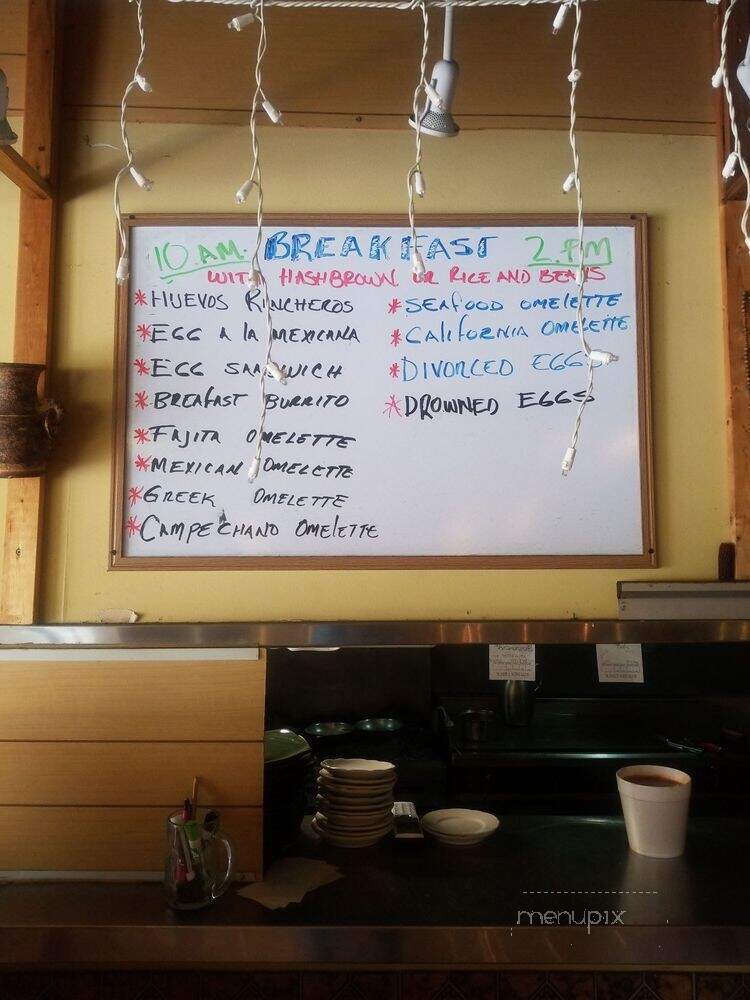 10 AM. BREAKFAST 2. PM
WITH HASHBROWN OR RICE AND BEANS
*HUEVOS RANCHEROS
*EGG A LA MEXICANA
*EGG SANDWICH
*BREAKFAST BURRITO
*FAJITA OMELETTE
*MEXICAN OMELETTE
*GREEK OMELETTE
*CAMPECHANO OMELETTE
*SEAFOOD OMELETTE
*CALIFORNIA OMELETTE
*DIVORCED EGGS
*DROWNED EGGS
menupix